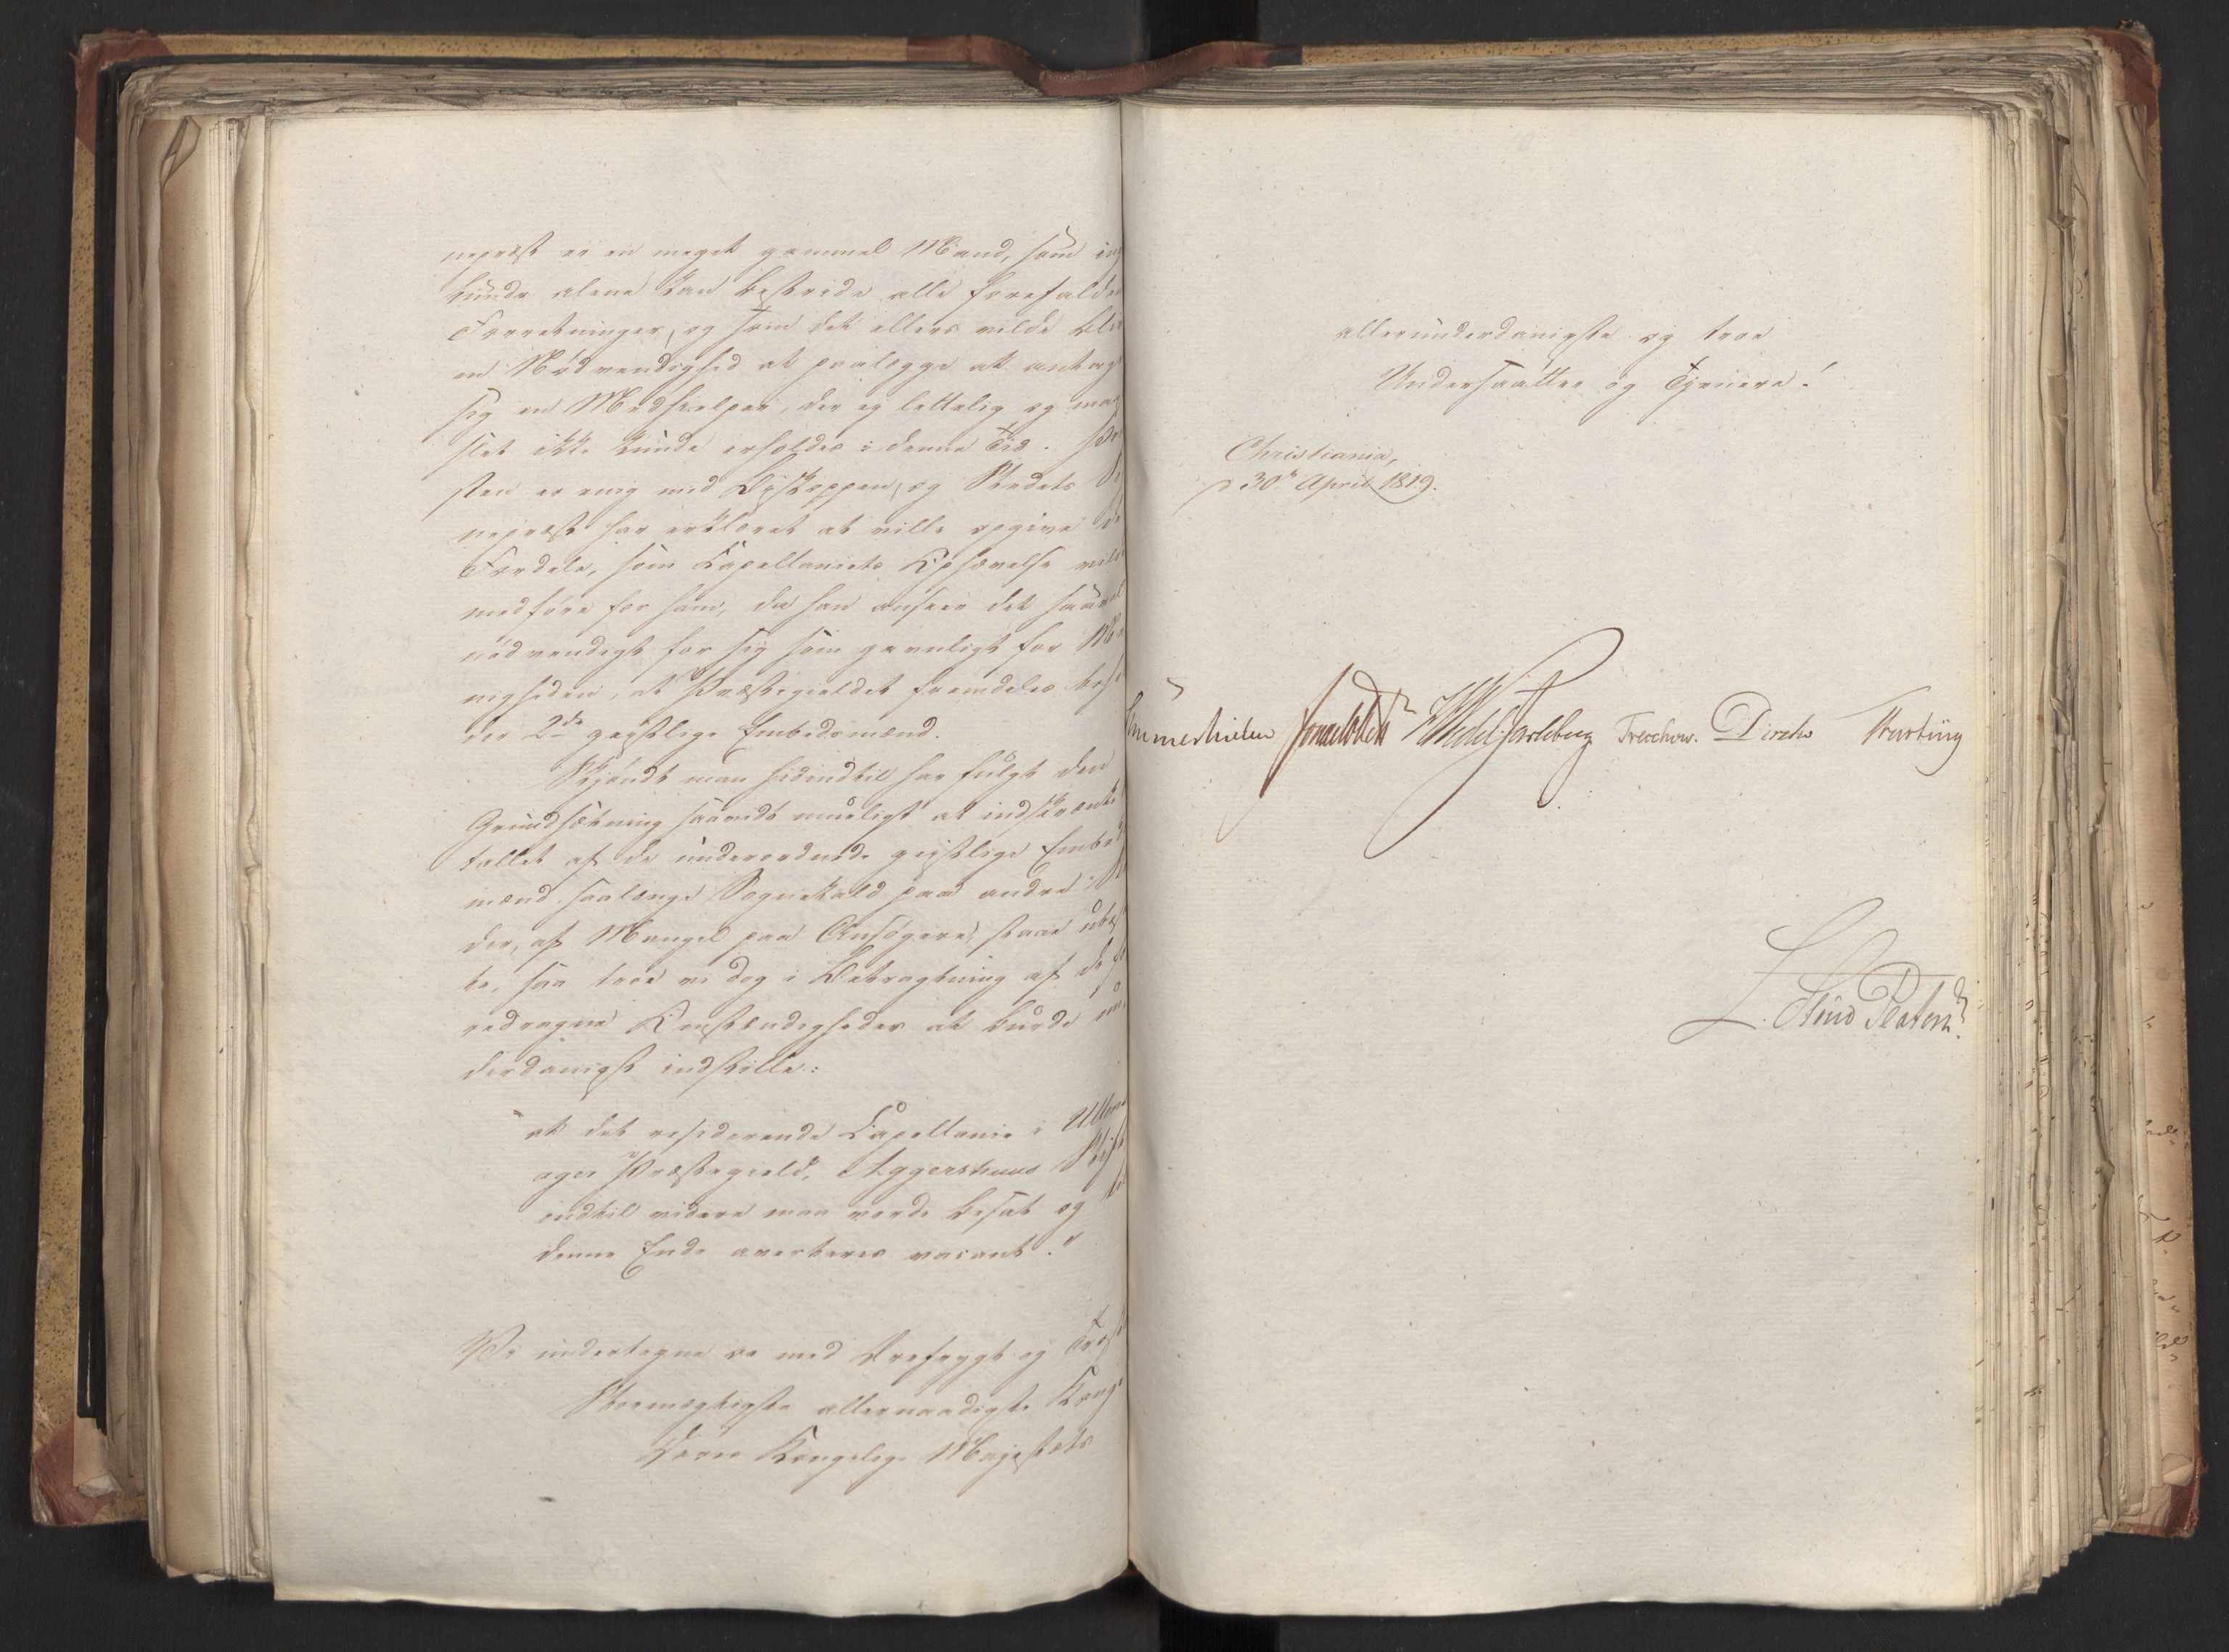 nepræst er en meget gammel Mand, som in
kunde alene kan bestride alle forefalden
Forretninger, og som det ellers vilde bliv
en Nødvendighed at paalægge at antage
sig en Medhielper, der ei lettelig og maa
slet ikke kunde erholdes i denne Tid.
sten er enig med Biskoppen, og Stedets
nepræst har erklæret at ville opgive de
Fordele, som Capellaniets Ophævelse vild
medføre for ham, da han anseer det saavel
nødvendigt for sig som gavnligt for Me
nigheden, at Præstegieldet fremdeles
der 2de geistlige Embedsmænd.
Skjøndt man hidindtil har fulgt den
Grundsætning saavidt mueligt at indskrænke
tallet af de underordnede geistlige Embeds
mænd saalænge Sognekald paa andre St
der, af Mangel paa Ansøgere, staae ubesat
te, saa troe vi dog i Betragtning af de
redragne Omstændigheder at burde un
derdanigst indstille:
"at det residerende Capellanie i Ullens
ager Præstegield, Aggershuus Stift
indtil videre maa vorde besat og til
denne Ende averteres vacant."
Vi undertegne os med Ærefrygt og Trosk
Stormægtigste allernaadigste Konge
Deres Kongelige Majestæts
allerunderdanigste og troe
Undersaatter og Tjenere!
Christiania,
d 30te April 1819.
Sommerhielm Jonas Collett HWedel Jarlsberg Treschow. Diriks Krefting
L. Stud Platou